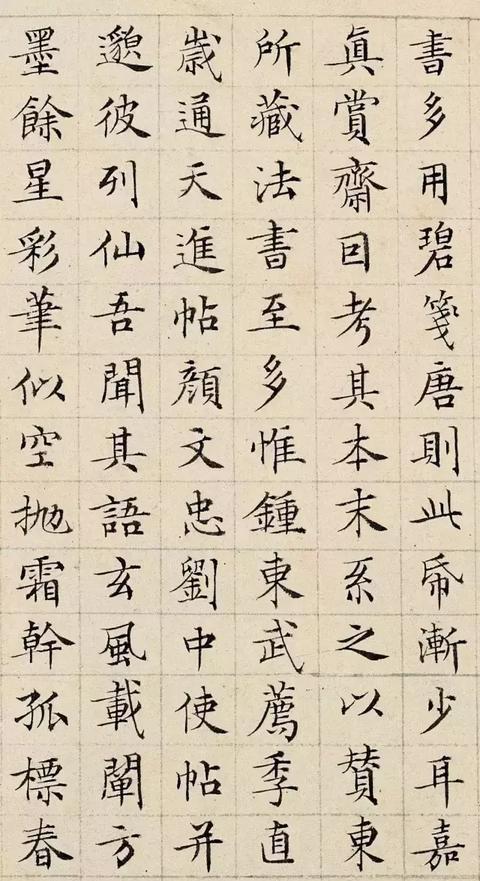 書多用碧箋唐則此帋漸少耳嘉
真賞齋因考其本末系之以贊東
所藏法書至多惟鍾東武薦季直
歳通天進帖顏文忠劉中使帖并
邈彼列仙吾聞其語玄風載闡方
墨餘星彩筆似空拋霜幹孤標春